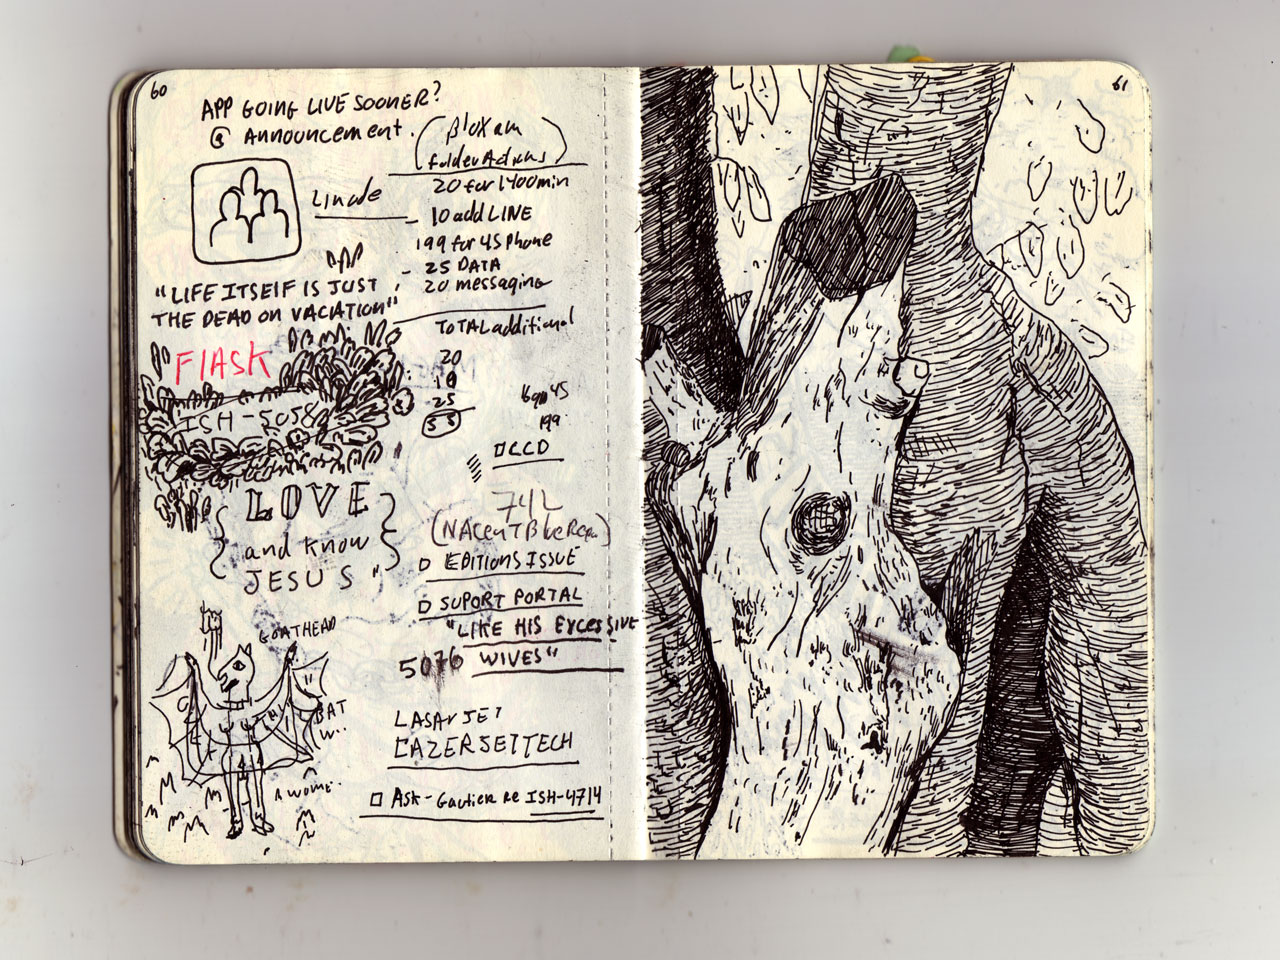 60
APP GOING LIVE SOONER?
@ ANNOUNCEMENT.
(BlOXam
folderActions)
Linode
20 for 1400min
10 add LINE
199 for 4S Phone
25 DATA
20 messaging
"LIFE ITSELF IS JUST
THE DEAD ON VACATION"
TOTAL additional
20
10
25
55
45
199
FlASK
ISH-5058
LOVE
and know
JESUS"
□ CCD
742
□ EDITIONS ISSUE
□ SUPORT PORTAL
"LIKE HIS EXCESSIVE
WIVES"
5076
GOATHEAD
BAT
W..
A WOME
LASAr JET
LAZERJETTECH
□ ASK-Gautier Re ISH-4714
61